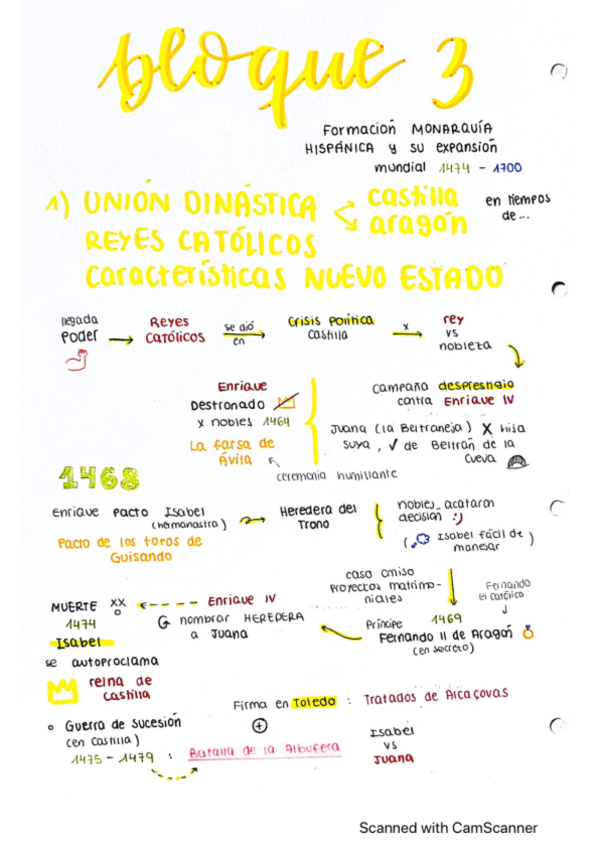 bloque 3
Formación MONARQUÍA
HISPÁNICA y su expansión
mundial 1474 - 1700
1) UNIÓN DINÁSTICA castilla
aragón en tiempos
de...
REYES CATÓLICOS
características NUEVO ESTADO
llegada
Poder → Reyes
católicos se dió
en → Crisis Política
Castilla x → rey
vs
nobleza
Campaña desprestigio
contra Enrique IV
Juana (la Beltraneja) X hija
suya, ✓ de Beltrán de la
Cueva
Enrique
Destronado
x nobles 1464
La farsa de
Ávila
ceremonia humillante
1468
Enrique pacto Isabel
(hermanastra)
Pacto de los toros de
Guisando
Heredera del
Trono
nobles acataron
decisión :)
( Isabel fácil de
manejar )
caso omiso
Proyectos matrimo-
niales
Fernando
el católico
↓
1469
Príncipe
Fernando II de Aragón
(en secreto)
Enrique IV
nombrar HEREDERA
a Juana
MUERTE XX
1474
Isabel
se autoproclama
reina de
Castilla
Firma en Toledo : Tratados de Alcaçovas
+
o Guerra de Sucesión
(en Castilla)
1475 - 1479 : Batalla de la Albufera
Isabel
vs
Juana
Scanned with CamScanner